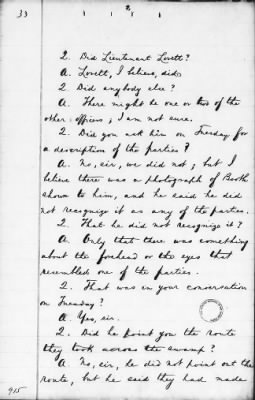 33
2
Q. Did Lieutenant Lovett?
A. Lovett, I believe, did.
Q. Did anybody else?
A. There might be one or two of the
other officers; I am not sure.
Q. Did you ask him on Tuesday for
a description of the parties?
A. No, sir, we did not; but I
believe there was a photograph of Booth
shown to him, and he said he did
not recognize it as any of the parties.
Q. That he did not recognize it?
A. Only that there was something
about the forehead or the eyes that
resembled one of the parties.
Q. That was in your conversation
on Tuesday?
A. Yes, sir.
Q. Did he point you the route
they took across the swamp?
A. No, sir, he did not point out the
route, but he said they had made
915